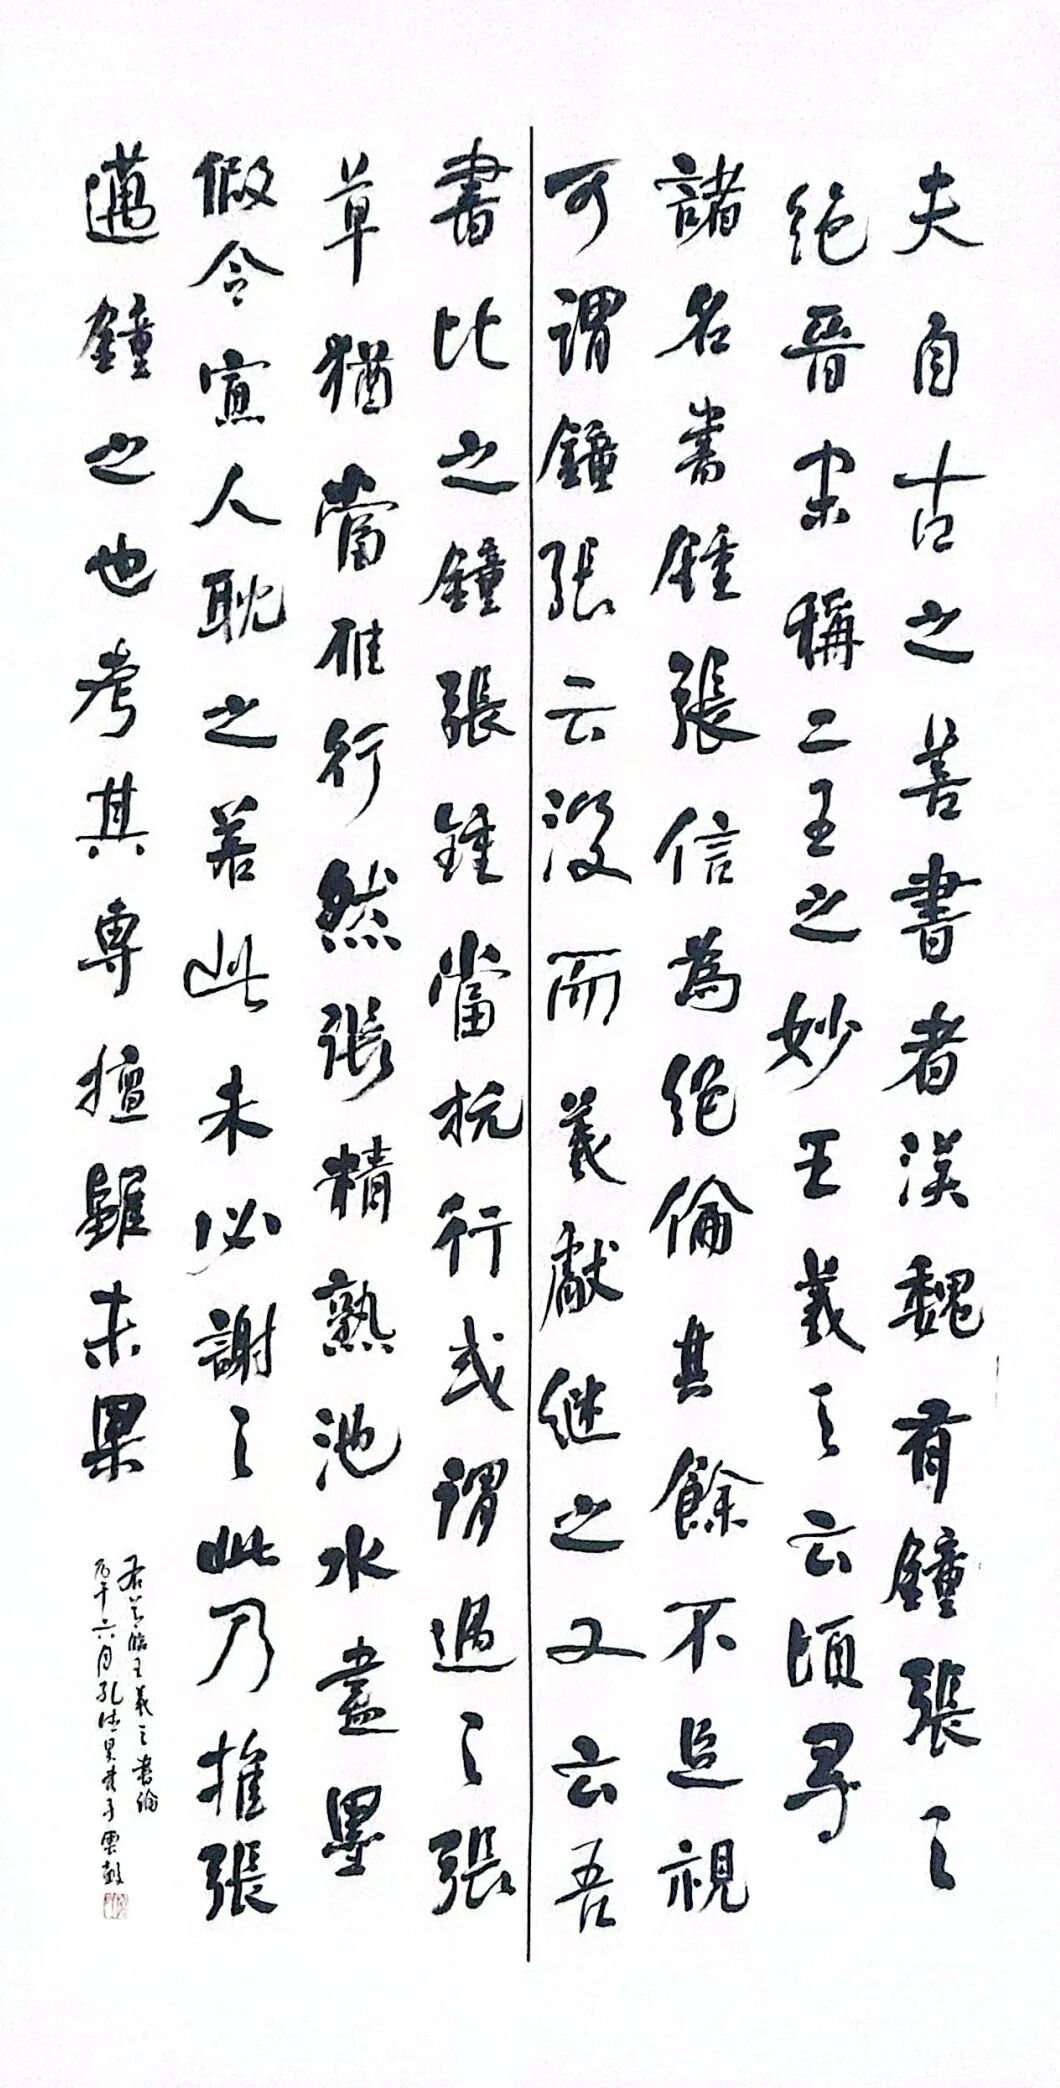 夫自古之善書者漢魏有鐘張之
絕晉末稱二王之妙王羲之云頃尋
諸名書鍾張信為絕倫其餘不足視
可謂鐘張云沒而羲獻继之又云吾
書比之鐘張鍾當抗行或謂過之張
草猶當雁行然張精熟池水盡墨
假令寡人耽之若此未必謝之此乃推張
邁鐘之也考其專擅雖未果
右节临王羲之書論
丙午六月孔